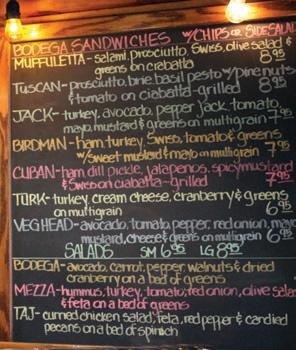 BODEGA SANDWICHES W/CHIPS OR SIDE SALAD
MUFFULETTA - salami, prosciutto, swiss, olive salad & 8.95
greens on ciabatta
TUSCAN - prosciutto, brie, basil pesto w/pine nuts
& tomato on ciabatta - grilled 8.95
JACK - turkey, avocado, pepper jack, tomato,
mayo, mustard & greens on multigrain 7.95
BIRDMAN - ham, turkey, swiss, tomato & greens
w/sweet mustard & mayo on multigrain 7.95
CUBAN - ham, dill pickle, jalapenos, spicy mustard
& swiss on ciabatta - grilled 7.95
TURK - turkey, cream cheese, cranberry & greens
on multigrain 6.95
VEGHEAD - avocado, tomato, pepper, red onion, mayo
mustard, cheese & greens on multigrain 6.95
SALADS SM 6.95 LG 8.95
BODEGA - avocado, carrot, pepper, walnuts & dried
cranberry on a bed of greens
MEZZA - hummus, turkey, tomato, red onion, olive salad
& feta on a bed of greens
TAJ - curried chicken salad, feta, red pepper & candied
pecans on a bed of spinich